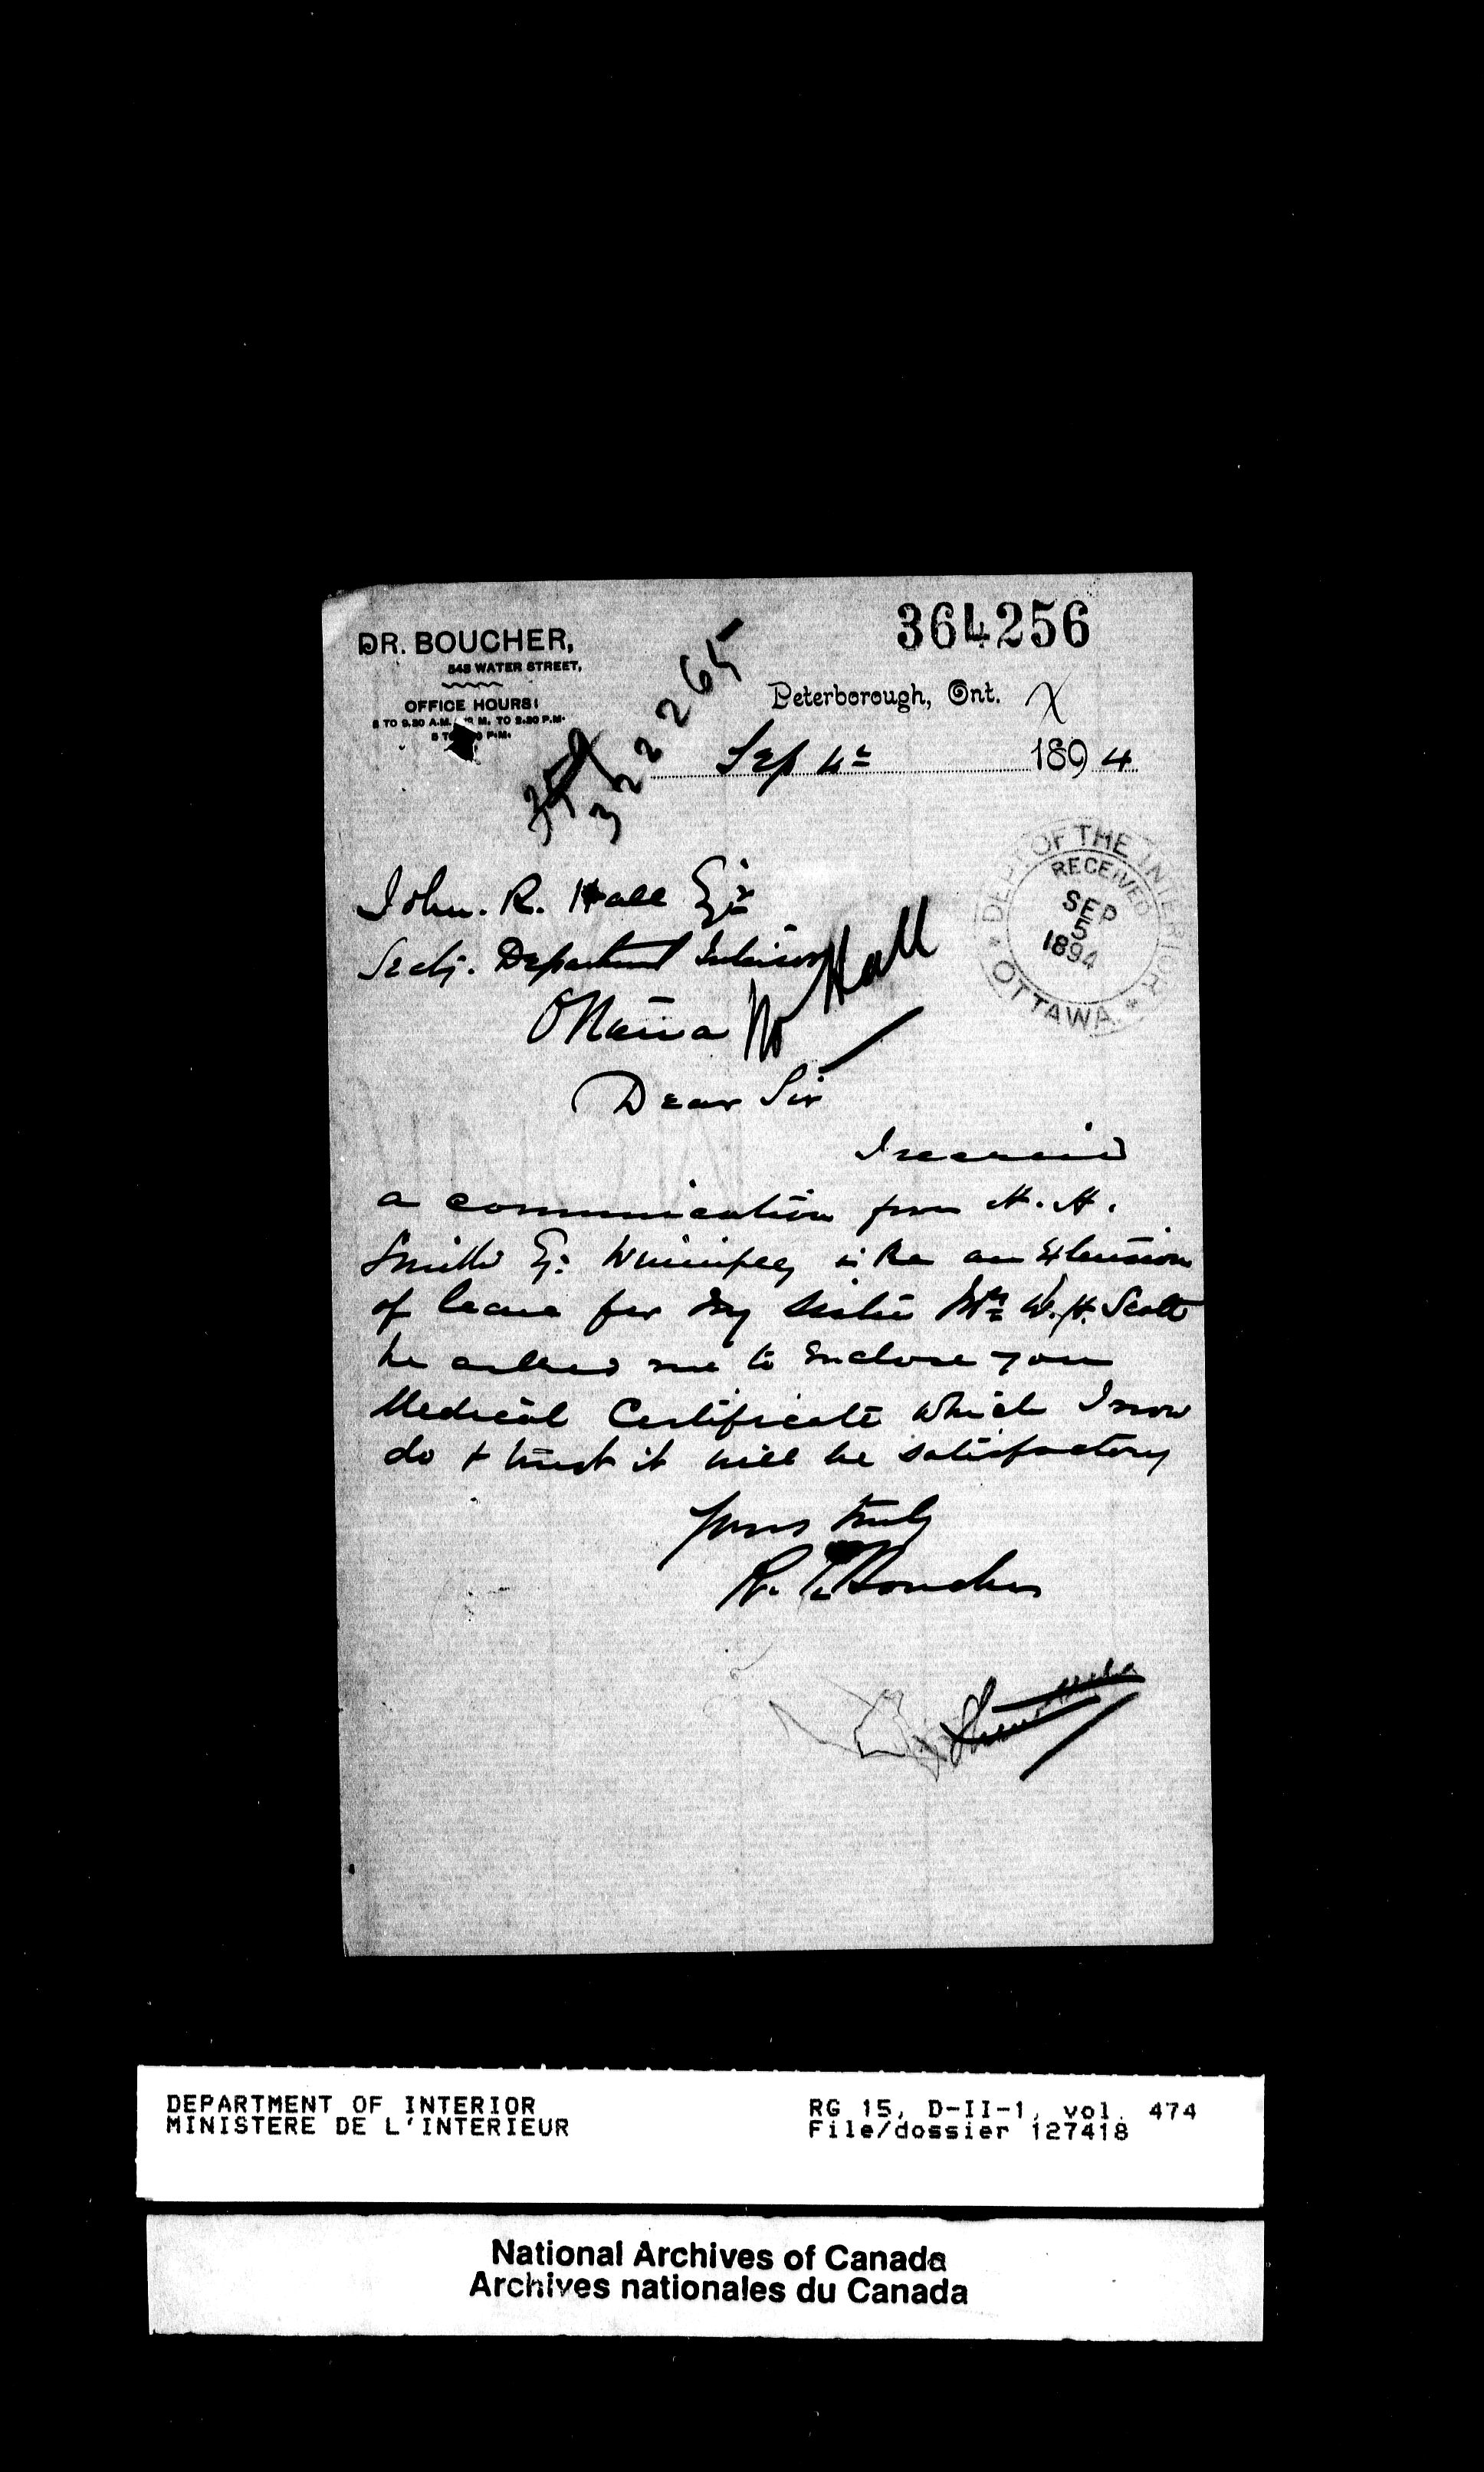 364256
DR. BOUCHER,
548 WATER STREET,
OFFICE HOURS:
8 TO 9.30 A.M. M. TO 2.30 P.M.
P.M.
322265
Peterborough, Ont. X
Sep 4th 1894
DEPT OF THE INTERIOR
RECEIVED
SEP
5
1894
* OTTAWA *
John. R. Hall Esqr
Secty. Department Interior
Hall
Ottawa
Dear Sir
I received
a communication from H. H.
Smith Esq: Winnipeg in Re an extension
of leave for my sister Mrs W. H. Scott
he asked me to enclose you
Medical Certificate which I now
do & trust it will be satisfactory
Yours truly
R. Boucher
DEPARTMENT OF INTERIOR
MINISTERE DE L'INTERIEUR
RG 15, D-II-1, vol. 474
File/dossier 127418
National Archives of Canada
Archives nationales du Canada